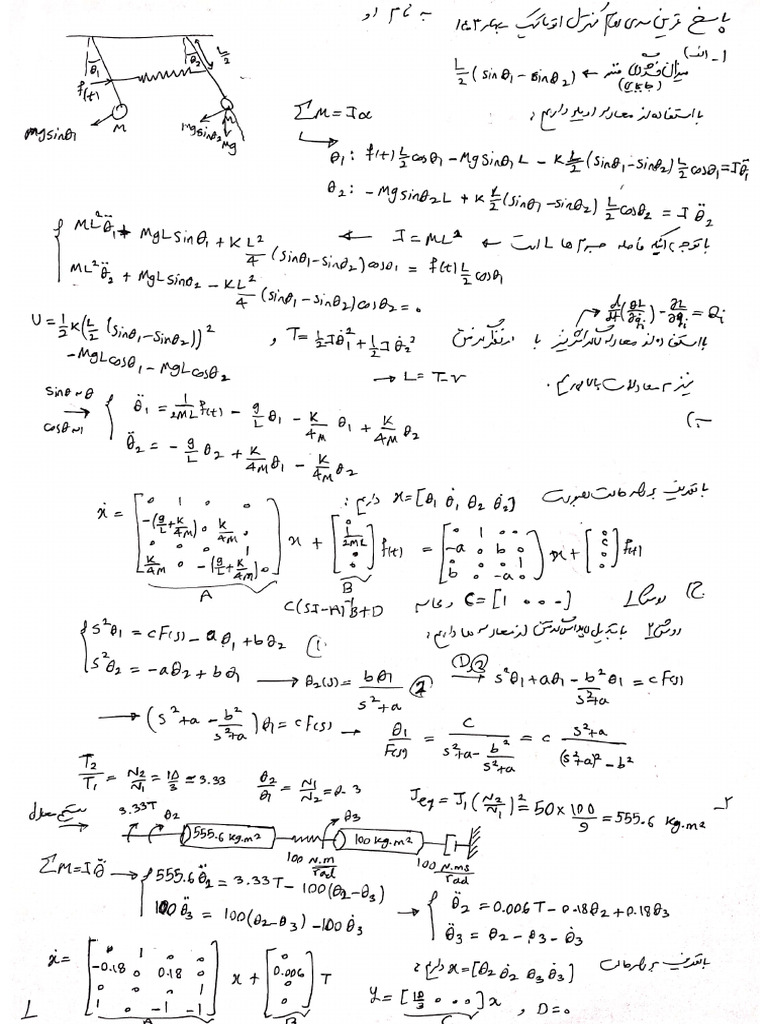 به نام او
پاسخ تمرین سری دوم کنترل اتوماتیک بهار ۱۴۰۳
۱- الف)
میزان فشردگی فنر ← L/2 (sinθ1 - sinθ2)
θ1 θ2 L/2 f(t) M M Mgsinθ1 Mgsinθ2 Mg
با استفاده از معادلات داریم:
ΣM = Iα
θ1: f(t) L/2 cosθ1 - MgSinθ1 L - K L/2 (sinθ1 - sinθ2) L/2 cosθ1 = Iθ̈1
θ2: -Mgsinθ2 L + K L/2 (sinθ1 - sinθ2) L/2 cosθ2 = I θ̈2
با توجه اینکه فاصله جرم ها L است ← I = ML² ←
ML²θ̈1 + MgLsinθ1 + KL²/4 (sinθ1 - sinθ2) cosθ1 = f(t) L/2 cosθ1
ML²θ̈2 + MgLsinθ2 - KL²/4 (sinθ1 - sinθ2) cosθ2 = 0
d/dt (∂L/∂q̇i) - ∂L/∂qi = Qi
با استفاده از معادله لاگرانژ نیز با در نظر گرفتن T = 1/2 Iθ̇1² + 1/2 Iθ̇2² , U = 1/2 K (L/2 (sinθ1 - sinθ2))² - MgLcosθ1 - MgLcosθ2
→ L = T - V
نیز به معادلات بالا
ب)
sinθ ~ θ
cosθ ~ 1
θ̈1 = 1/2ML f(t) - g/L θ1 - K/4M θ1 + K/4M θ2
θ̈2 = - g/L θ2 + K/4M θ1 - K/4M θ2
با تعریف بردار حالت بصورت x = [θ1 θ̇1 θ2 θ̇2] داریم:
ẋ = [0 1 0 0; -(g/L + K/4M) 0 K/4M 0; 0 0 0 1; K/4M 0 -(g/L + K/4M) 0] x + [0; 1/2ML; 0; 0] f(t) = [0 1 0 0; -a 0 b 0; 0 0 0 1; b 0 -a 0] x + [0; c; 0; 0] f(t)
A B
ج) روش 1 C = [1 0 0 0] C(SI-A)⁻¹B + D
روش ۲ با تبدیل لاپلاس گرفتن از معادله ها داریم:
s²θ1 = cF(s) - aθ1 + bθ2 ①
s²θ2 = -aθ2 + bθ1 → θ2(s) = bθ1/(s²+a) ② ①,② → s²θ1 + aθ1 - b²/(s²+a) θ1 = cF(s)
→ (s² + a - b²/(s²+a)) θ1 = cF(s) → θ1/F(s) = c/(s²+a - b²/(s²+a)) = c (s²+a)/((s²+a)² - b²)
۲- Jeq = J1 (N2/N1)² = 50 × 100/9 = 555.6 kg.m²
T2/T1 = N2/N1 = 10/3 ≃ 3.33 θ2/θ1 = N1/N2 = 0.3
3.33T θ2 555.6 kg.m² 100 N.m/rad θ3 100 kg.m² 100 N.ms/rad
ΣM = Iθ̈ → 555.6θ̈2 = 3.33T - 100(θ2 - θ3)
100θ̈3 = 100(θ2 - θ3) - 100θ̇3
→ θ̈2 = 0.006T - 0.18θ2 + 0.18θ3
θ̈3 = θ2 - θ3 - θ̇3
با تعریف بردار حالت x = [θ2 θ̇2 θ3 θ̇3] داریم:
ẋ = [0 1 0 0; -0.18 0 0.18 0; 0 0 0 1; 1 0 -1 -1] x + [0; 0.006; 0; 0] T
A B
y = [10/3 0 0 0] x , D = 0
C
1